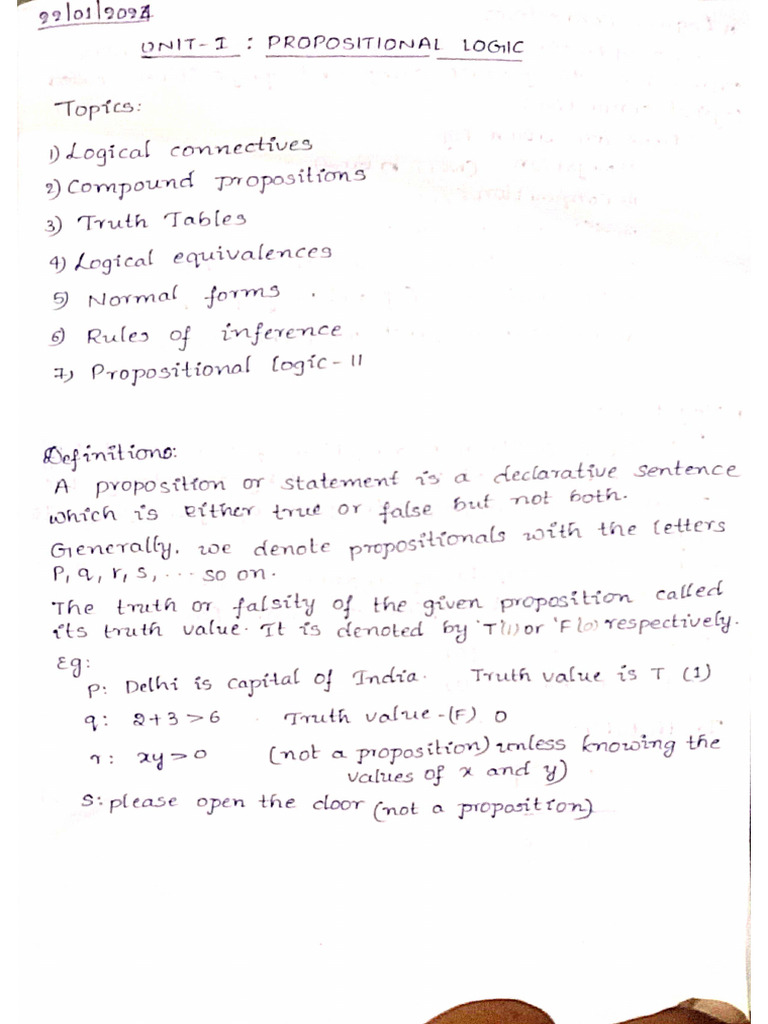 22/01/2024
UNIT-I : PROPOSITIONAL LOGIC
Topics:
1) Logical connectives
2) Compound propositions
3) Truth Tables
4) Logical equivalences
5) Normal forms .
6) Rules of inference
7) Propositional logic-II
Definitions:
A proposition or statement is a declarative sentence
which is either true or false but not both.
Generally, we denote propositionals with the letters
P, q, r, s, ... so on.
The truth or falsity of the given proposition called
its truth value. It is denoted by 'T(1) or 'F(0) respectively.
Eg:
P: Delhi is capital of India. Truth value is T (1)
q: 2+3>6 Truth value -(F) 0
r: xy>0 (not a proposition) unless knowing the
values of x and y)
S: please open the door (not a proposition)